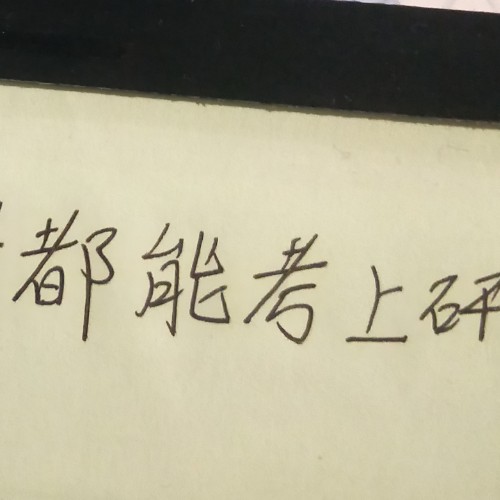 都能考上研